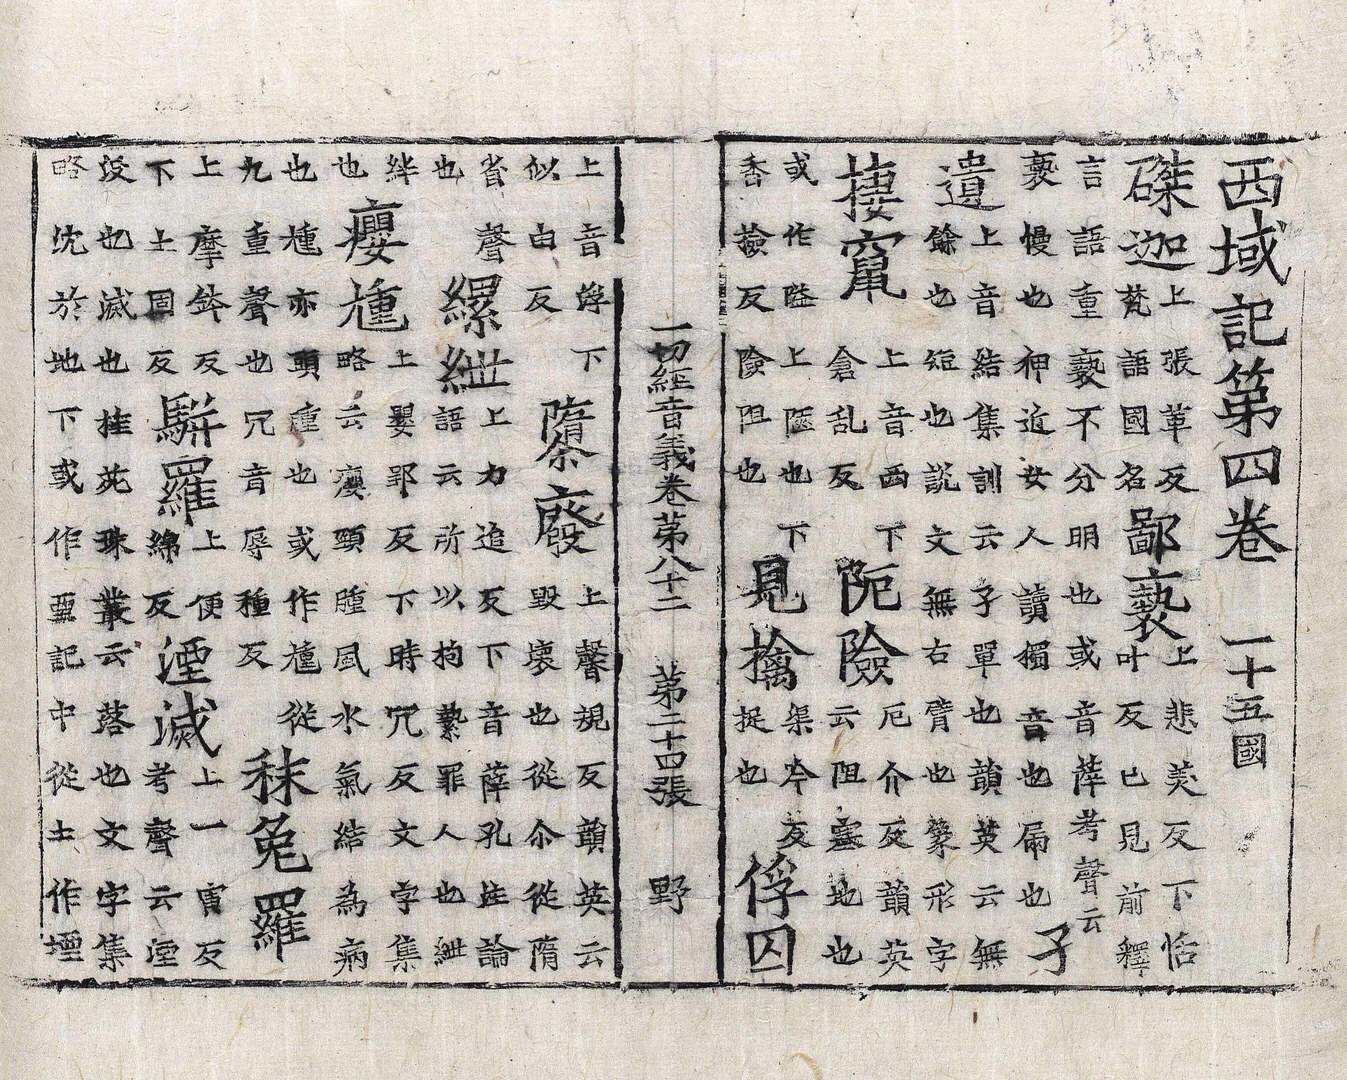 西域記第四卷 一十五國
磔迦 上張革反梵語國名 鄙褻 上悲美反下恬叶反已見前釋
言語重褻不分明也或音薩考聲云褻慢也神近女人讀獨音也扇也 孑
遺 上音結集訓云孑單也韻英云無餘也短也説文無右臂也篆形字
捿竄 上音西下倉乱反 阨險 厄介反韻英云阻塞地也
或作隘上陋也下香撿反險阻也 見擒 渠今反捉也 俘囚
一切經音義卷苐八十二 苐二十四張 野
上音烰下似由反 隳廢 上聲規反韻英云毀壞也從尒從隋
省聲也 縲紲 上力追反下音薛孔注論語云所以拘縶罪人也紲
絆也 癭尰 上嬰郢反下時冗反文字集略云癭頸腫風水氣結為病
也尰亦頭瘇也或作尰從九重聲也冗音辱種反 秣兔羅
上摩鉢反下土固反 駢羅 上便綿反 湮滅 上一寅反考聲云湮
没也滅也桂苑珠叢云落也文字集略沈於地下或作垔記中從土作堙